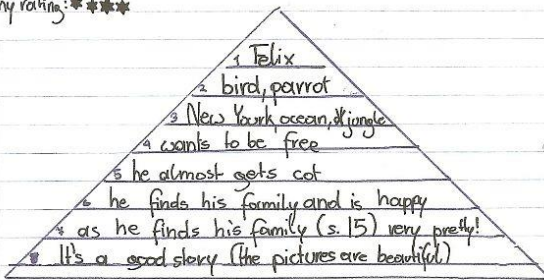 my rating: ****
1 Felix
2 bird, parrot
3 New Yourk, ocean, jungle
4 wants to be free
5 he almost gets cot
6 he finds his family and is happy
7 as he finds his family (s. 15) very pretty!
8 It's a good story (the pictures are beautiful)